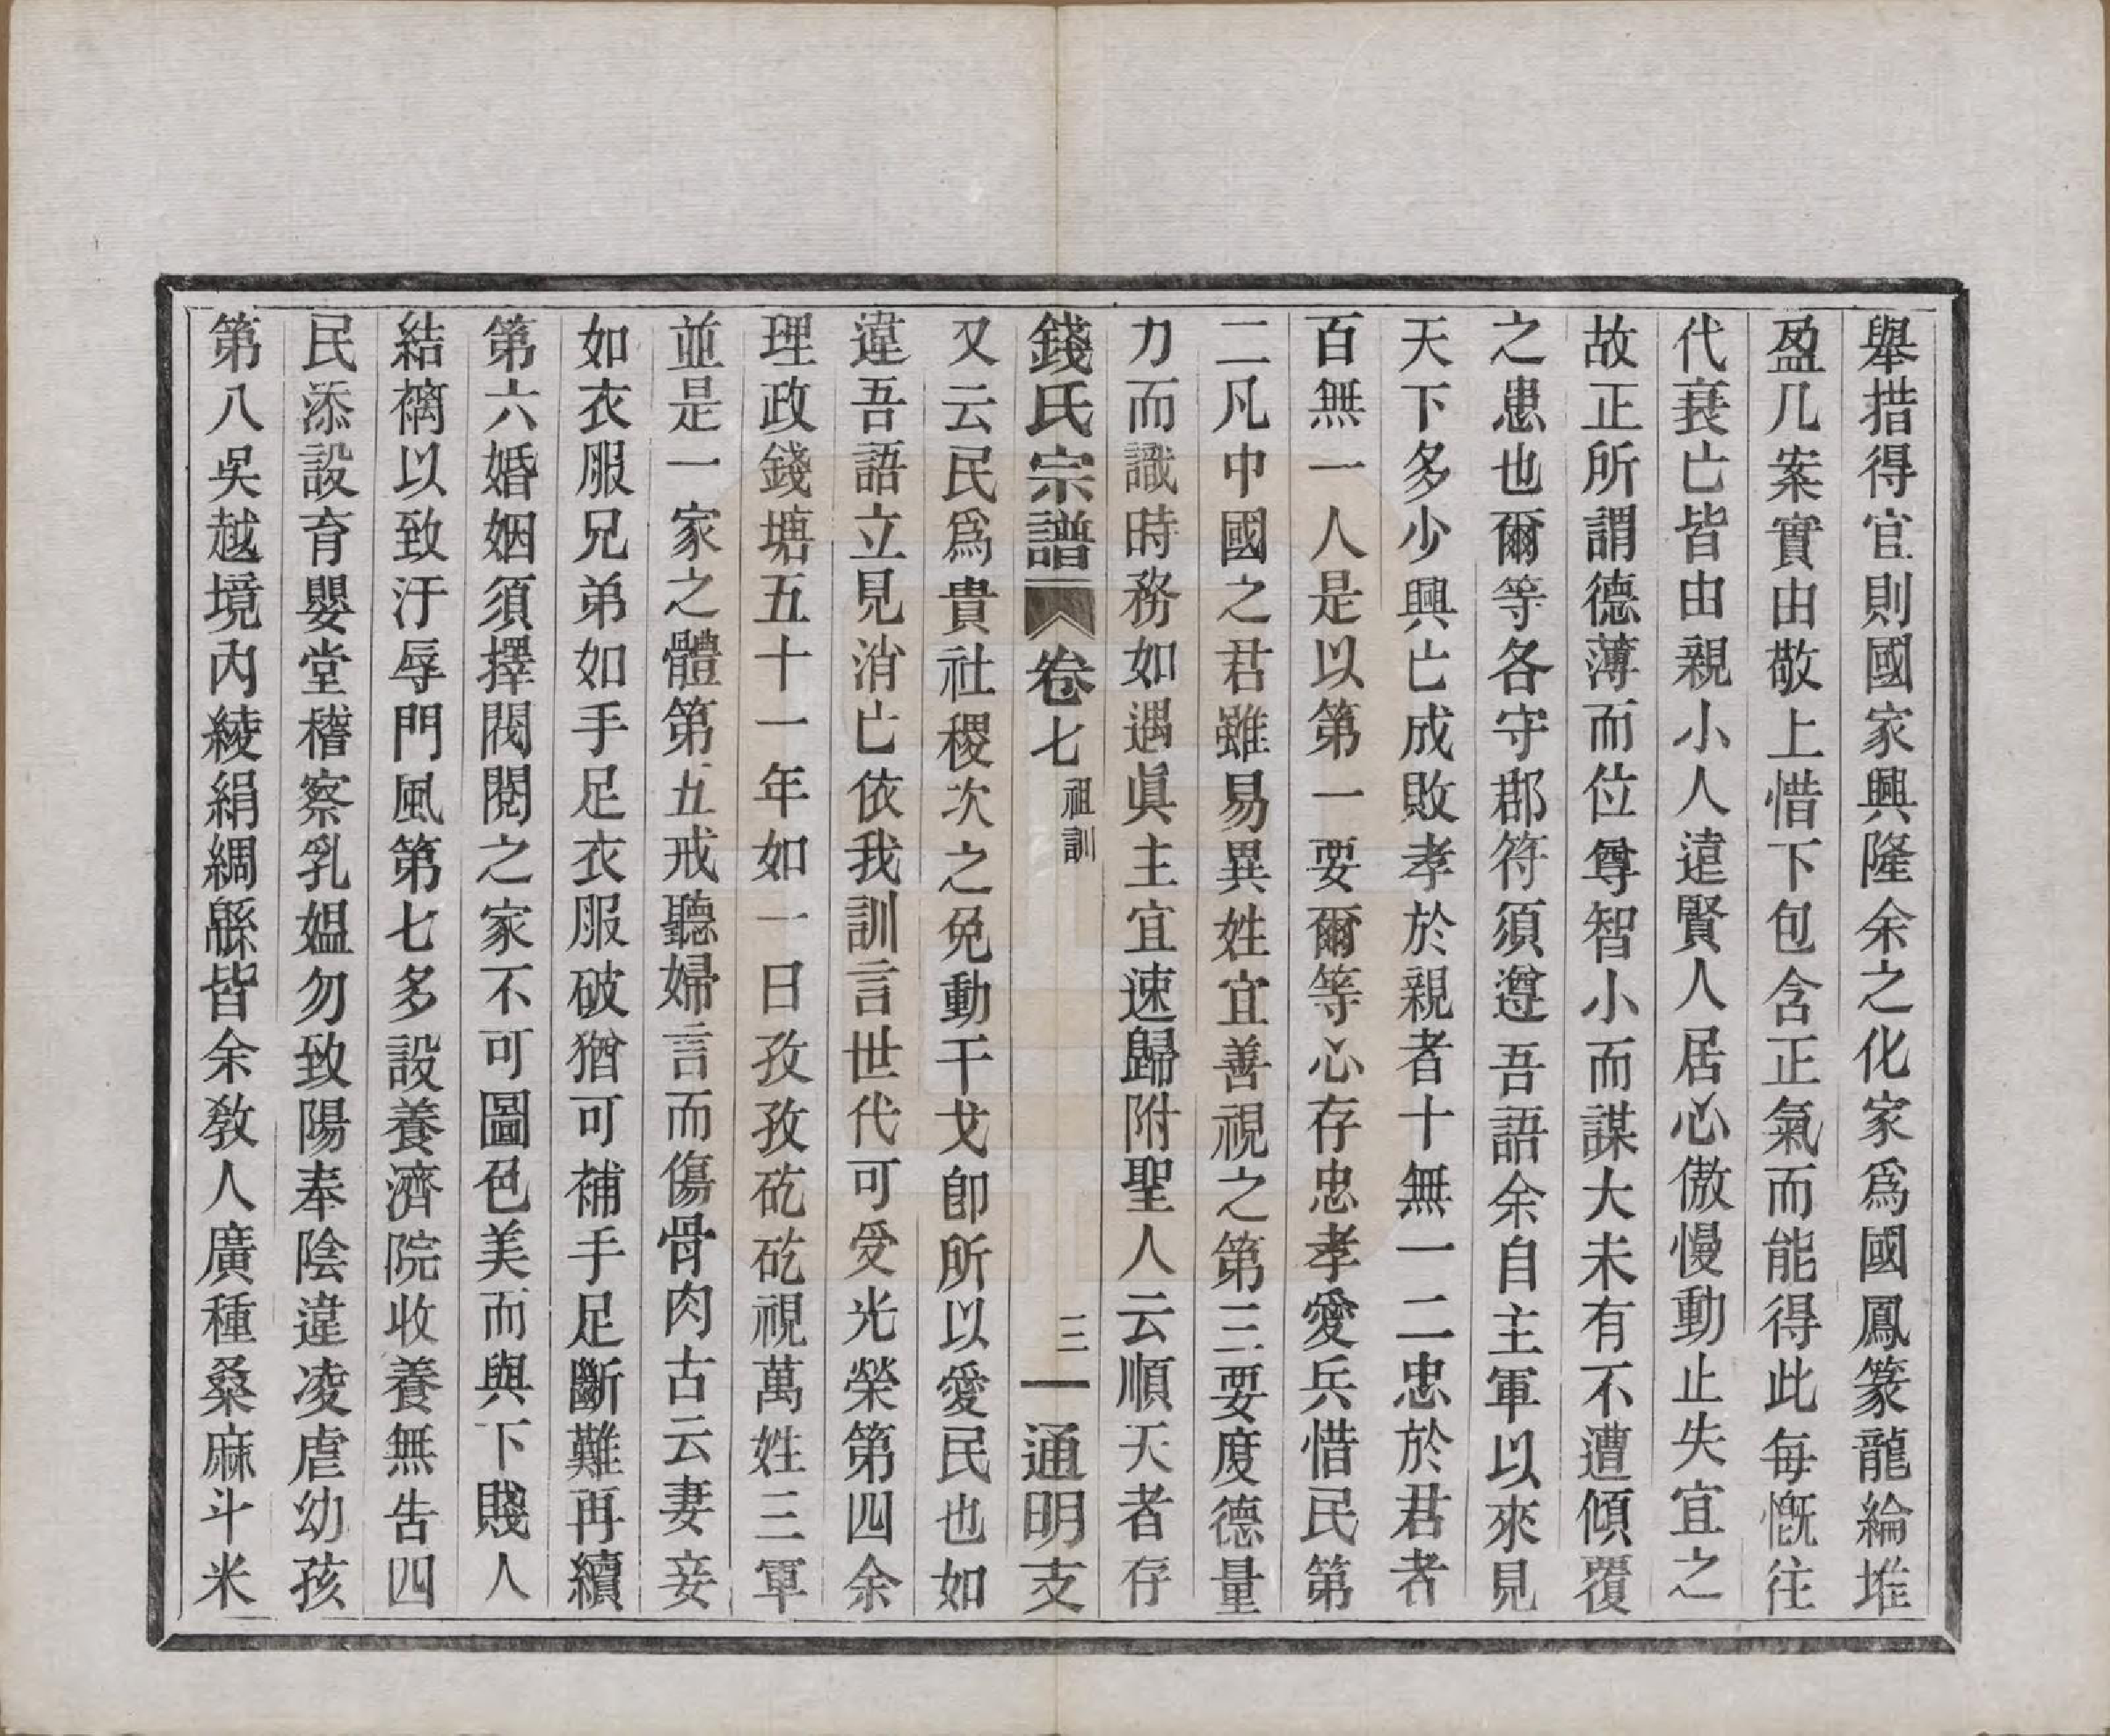 舉措得官則國家興隆余之化家爲國鳳篆龍綸堆
盈几案實由敬上惜下包含正氣而能得此每慨往
代衰亡皆由親小人遠賢人居心傲慢動止失宜之
故正所謂德薄而位尊智小而謀大未有不遭傾覆
之患也爾等各守郡符須遵吾語余自主軍以來見
天下多少興亡成敗孝於親者十無一二忠於君者
百無一人是以第一要爾等心存忠孝愛兵惜民第
二凡中國之君雖易異姓宜善視之第三要度德量
力而識時務如遇眞主宜速歸附聖人云順天者存
錢氏宗譜 卷七 祖訓 三 通明支
又云民爲貴社稷次之免動干戈卽所以愛民也如
違吾語立見消亡依我訓言世代可受光榮第四余
理政錢塘五十一年如一日孜孜矻矻視萬姓三軍
並是一家之體第五戒聽婦言而傷骨肉古云妻妾
如衣服兄弟如手足衣服破猶可補手足斷難再續
第六婚姻須擇閥閱之家不可圖色美而與下賤人
結褵以致汙辱門風第七多設養濟院收養無告四
民添設育嬰堂稽察乳媼勿致陽奉陰違凌虐幼孩
第八吳越境內綾絹綢緜皆余敎人廣種桑麻斗米